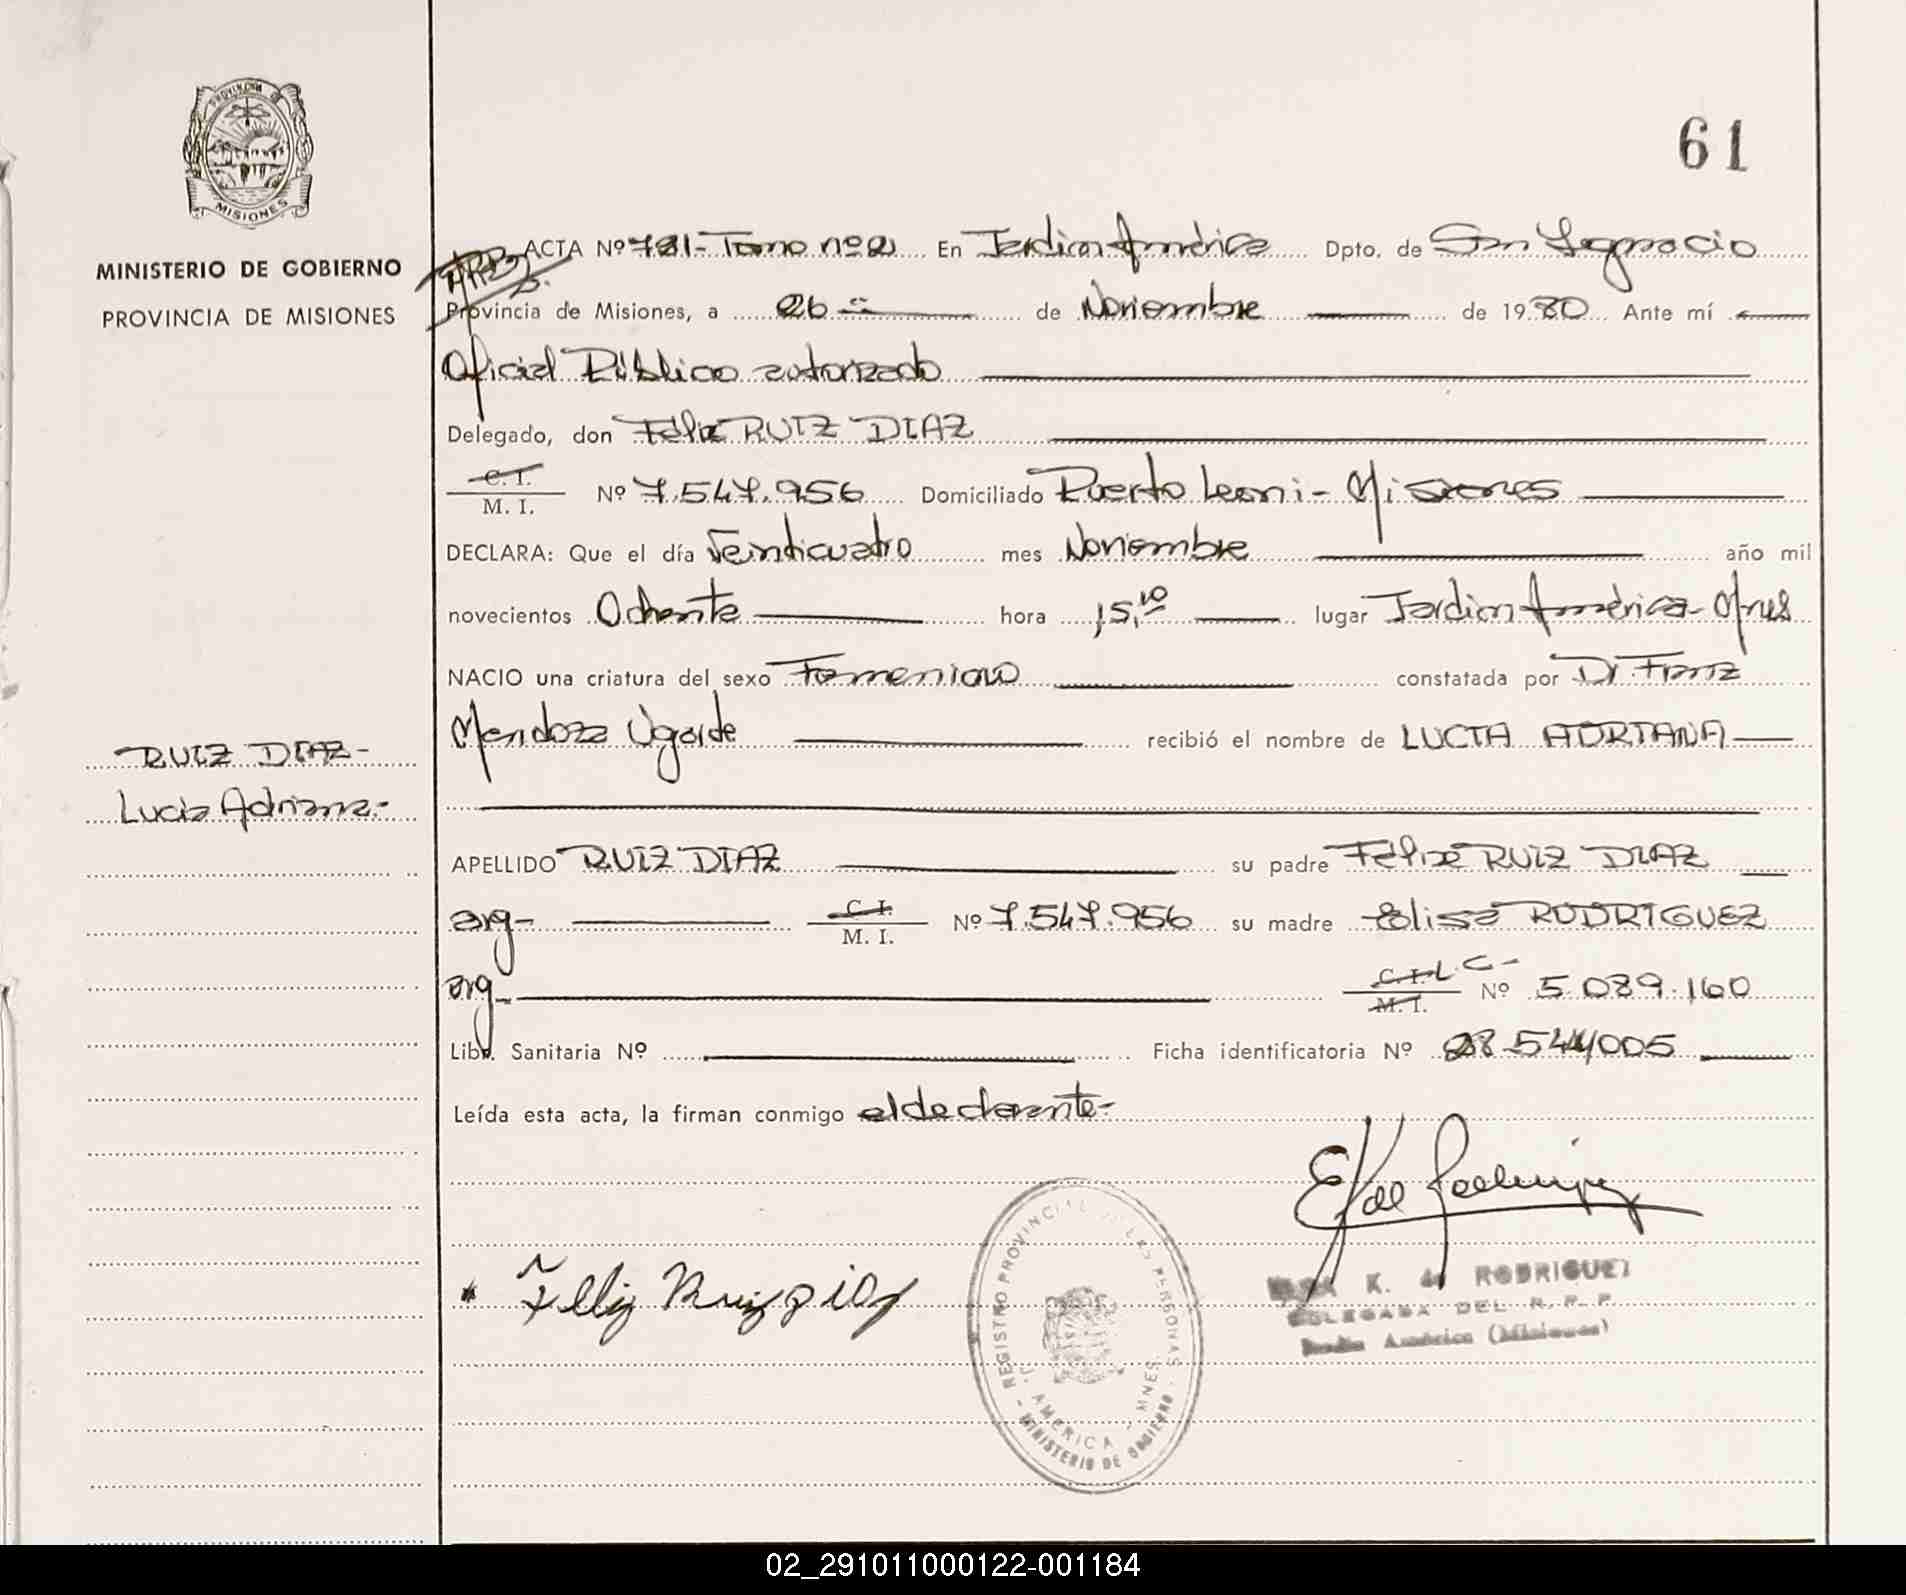 61
PROVINCIA
MISIONES
MINISTERIO DE GOBIERNO
PROVINCIA DE MISIONES
ACTA Nº 781- Tomo nº 2 En Jardin América Dpto. de San Ignacio
Provincia de Misiones, a 26 de Noviembre de 1980 Ante mí
Oficial Público autorizado
Delegado, don Félix RUIZ DIAZ
C. I.
M. I. Nº 7.547.956 Domiciliado Puerto Leoni - Misiones
DECLARA: Que el día Veinticuatro mes Noviembre año mil
novecientos Ochenta hora 15,10 lugar Jardin América - Mnes
NACIO una criatura del sexo Femenino constatada por Dr. Franz
Mendoza Ugarde recibió el nombre de LUCIA ADRIANA
RUIZ DIAZ-
Lucia Adriana.-
APELLIDO RUIZ DIAZ su padre Félix RUIZ DIAZ
arg- C. I.
M. I. Nº 7.547.956 su madre Elisa RODRIGUEZ
arg- C. I. L C-
M. I. Nº 5.089.160
Libr. Sanitaria Nº Ficha identificatoria Nº 28.544005
Leída esta acta, la firman conmigo el declarante-
Feliz Ruiz Diaz
REGISTRO PROVINCIAL DE LAS PERSONAS
J. AMERICA - MNES.
- MINISTERIO DE GOBIERNO -
K. de RODRIGUEZ
DELEGADA DEL R. P. P.
Jardin América (Misiones)
02_291011000122-001184